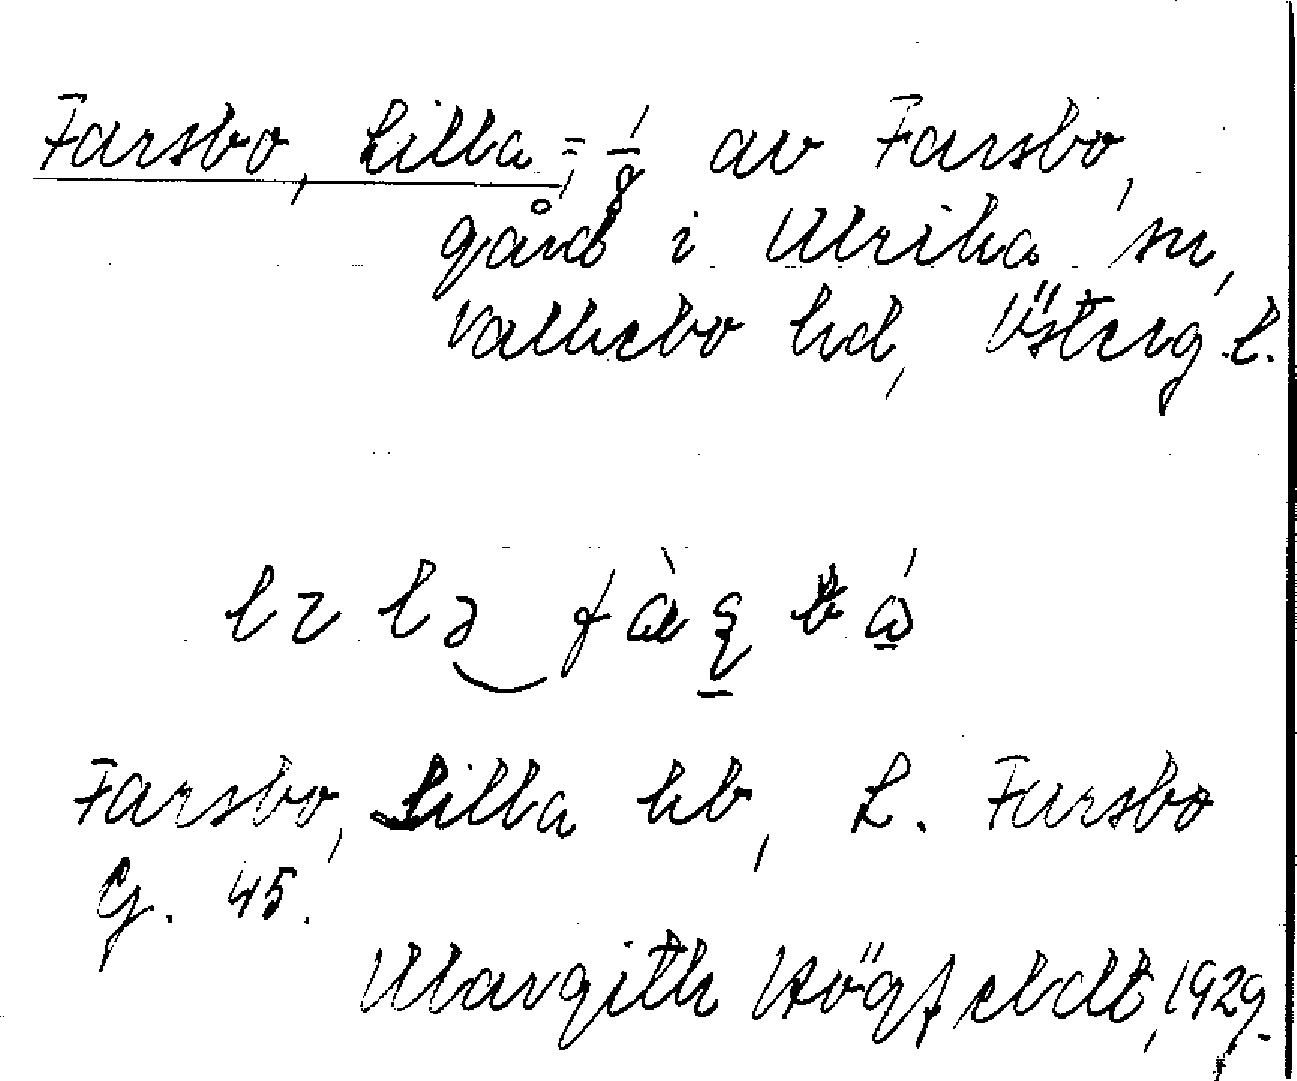 Farsbo, Lilla, = 1/8 av Farsbo,
gård i Ulrika sn,
Valkebo hd, Östergl.
Farsbo, Lilla hb, L. Farsbo
G. 45.
Margith Högfeldt, 1929.